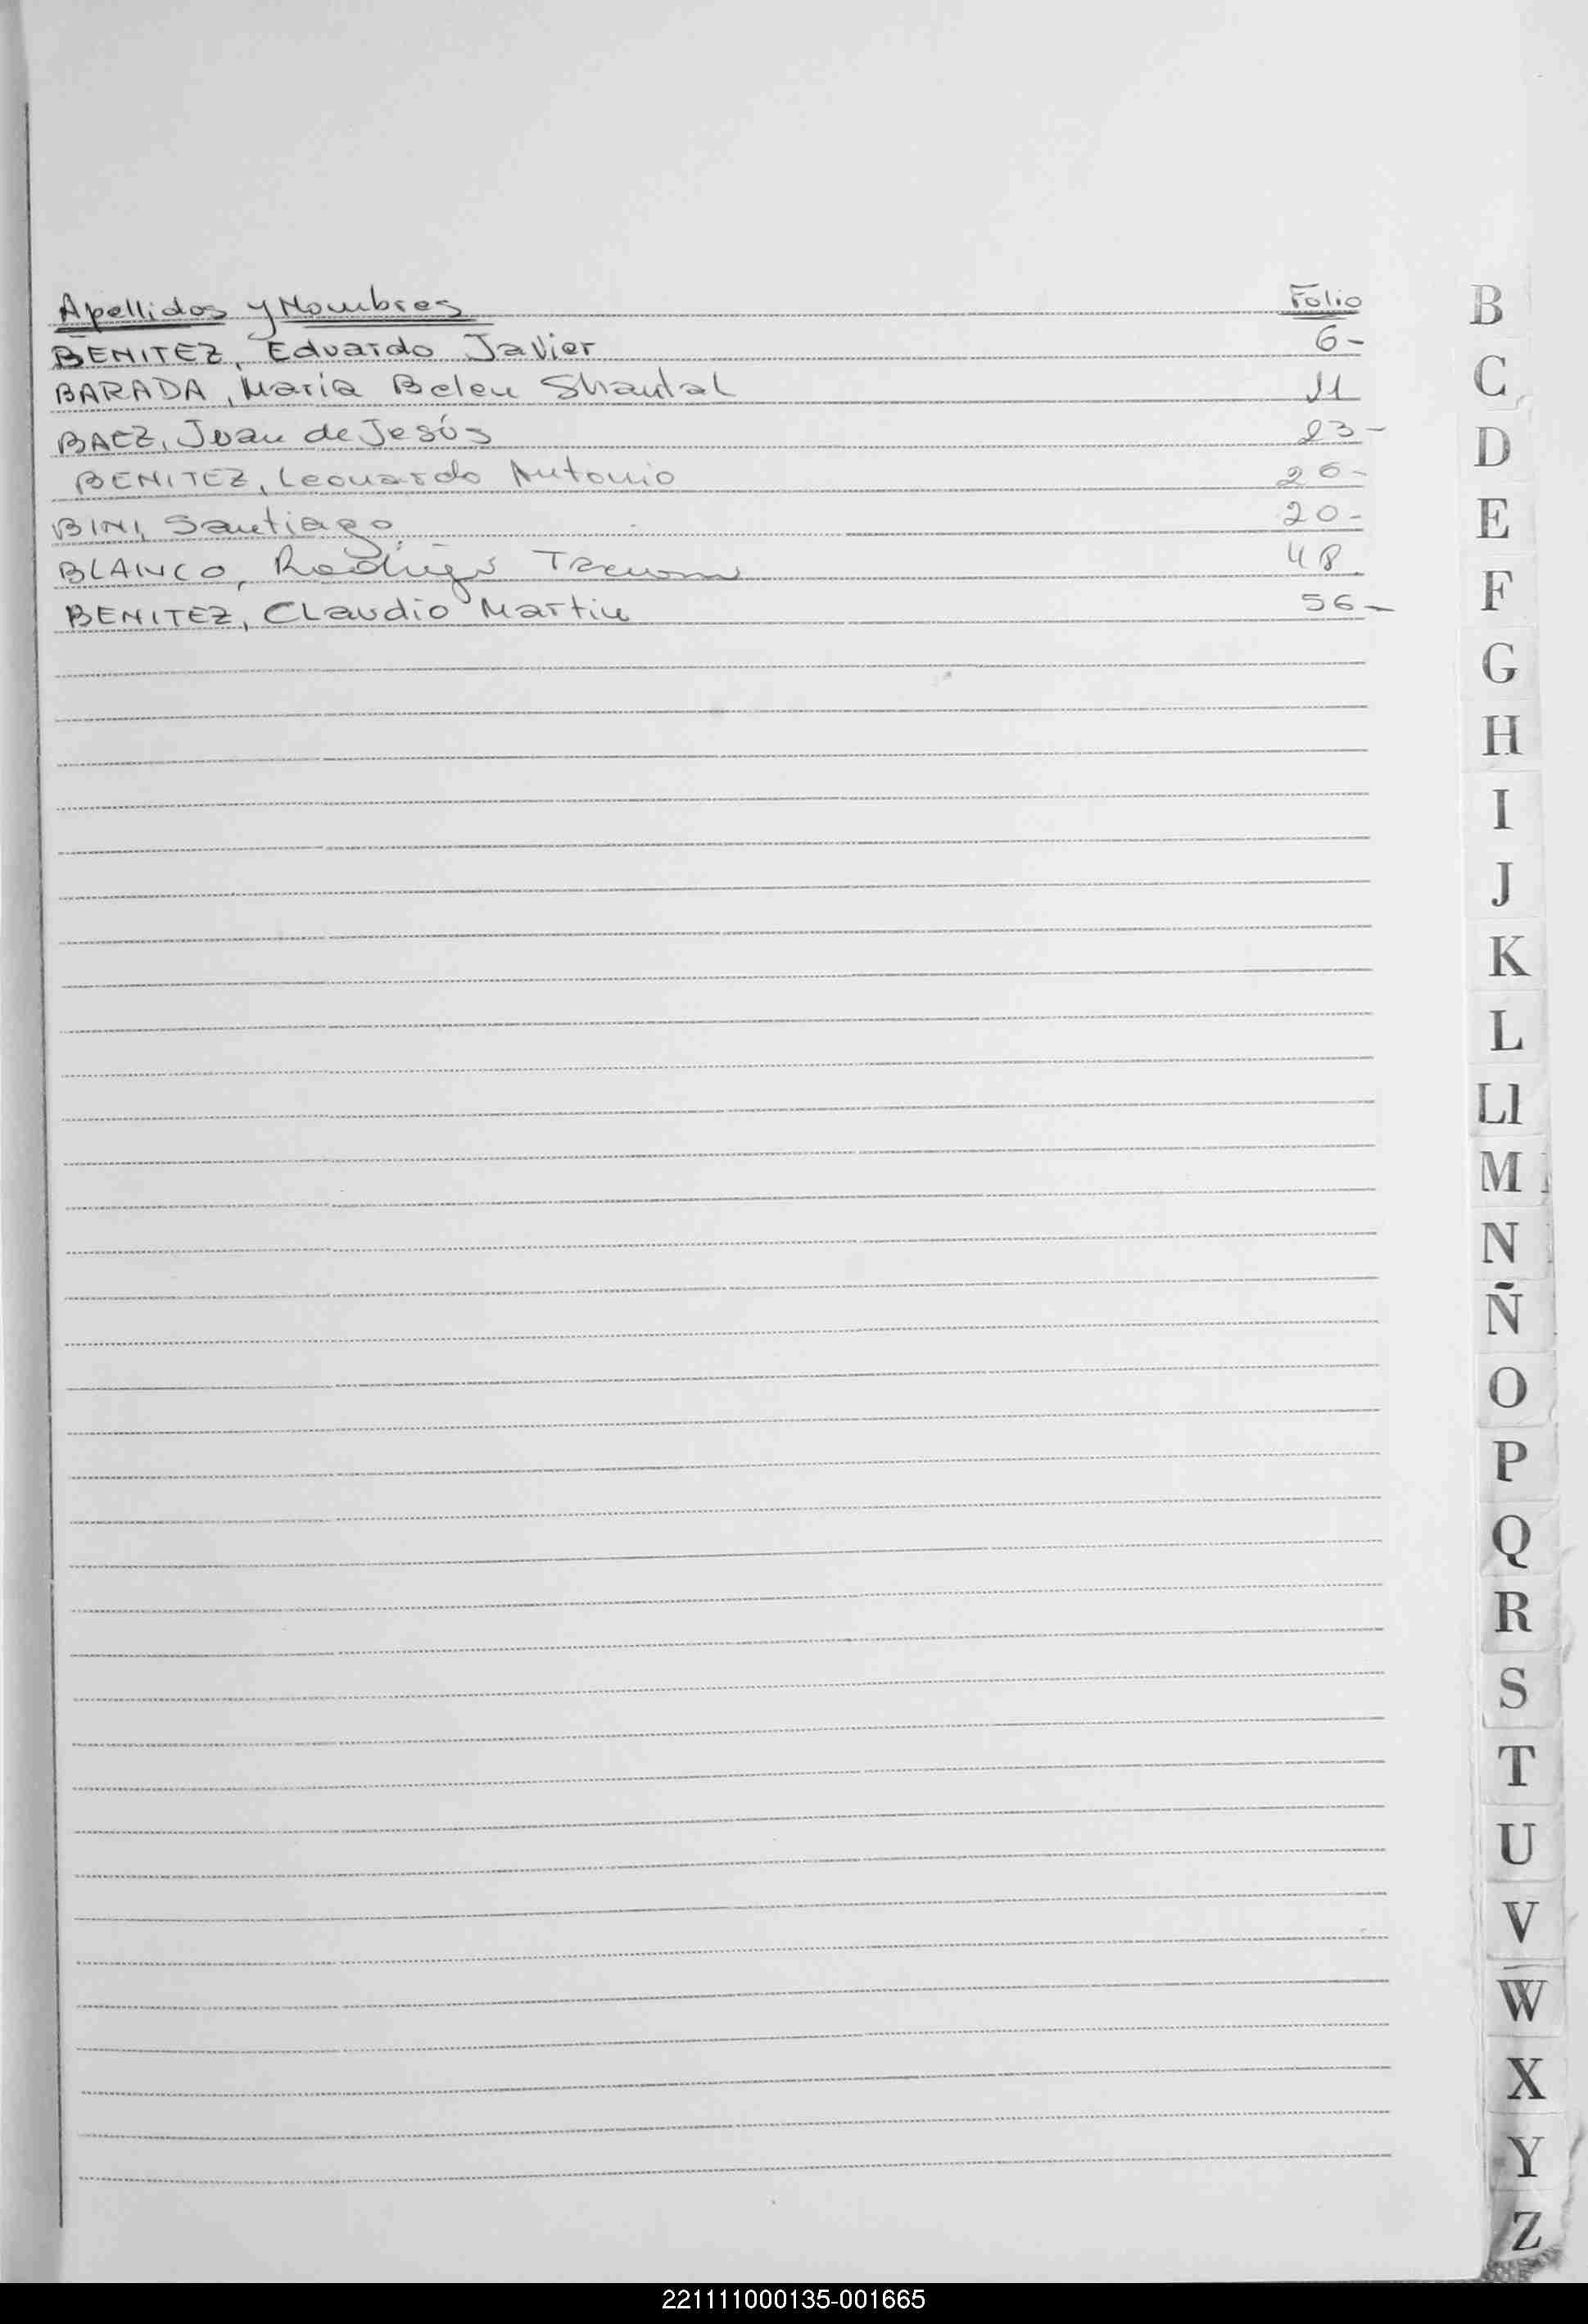 Apellidos y Nombres Folio
BENITEZ, Eduardo Javier 6-
BARADA, Maria Belen Shantal 11
BAEZ, Juan de Jesús 23-
BENITEZ, Leonardo Antonio 26-
BINI, Santiago 20-
BLANCO, Rodrigo 48
BENITEZ, Claudio Martin 56-
B
C
D
E
F
G
H
I
J
K
L
Ll
M
N
Ñ
O
P
Q
R
S
T
U
V
W
X
Y
Z
221111000135-001665